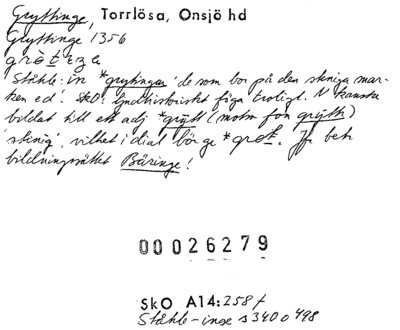 Gryttinge, Torrlösa, Onsjö hd
Gryttinge 1356
Ståhle: in *grytingar 'de som bor på den steniga mar-
ken ed'. SkO: ljudhistoriskt föga troligt. N kanske
bildat till ett adj *grýtt (motsv fon grýttr)
'stenig', vilket i dial bör ge *grøt. Jfr beh
bildningssättet Båringe!
00026279
SkO A14: 258 f
Ståhle -inge s 340 o 498